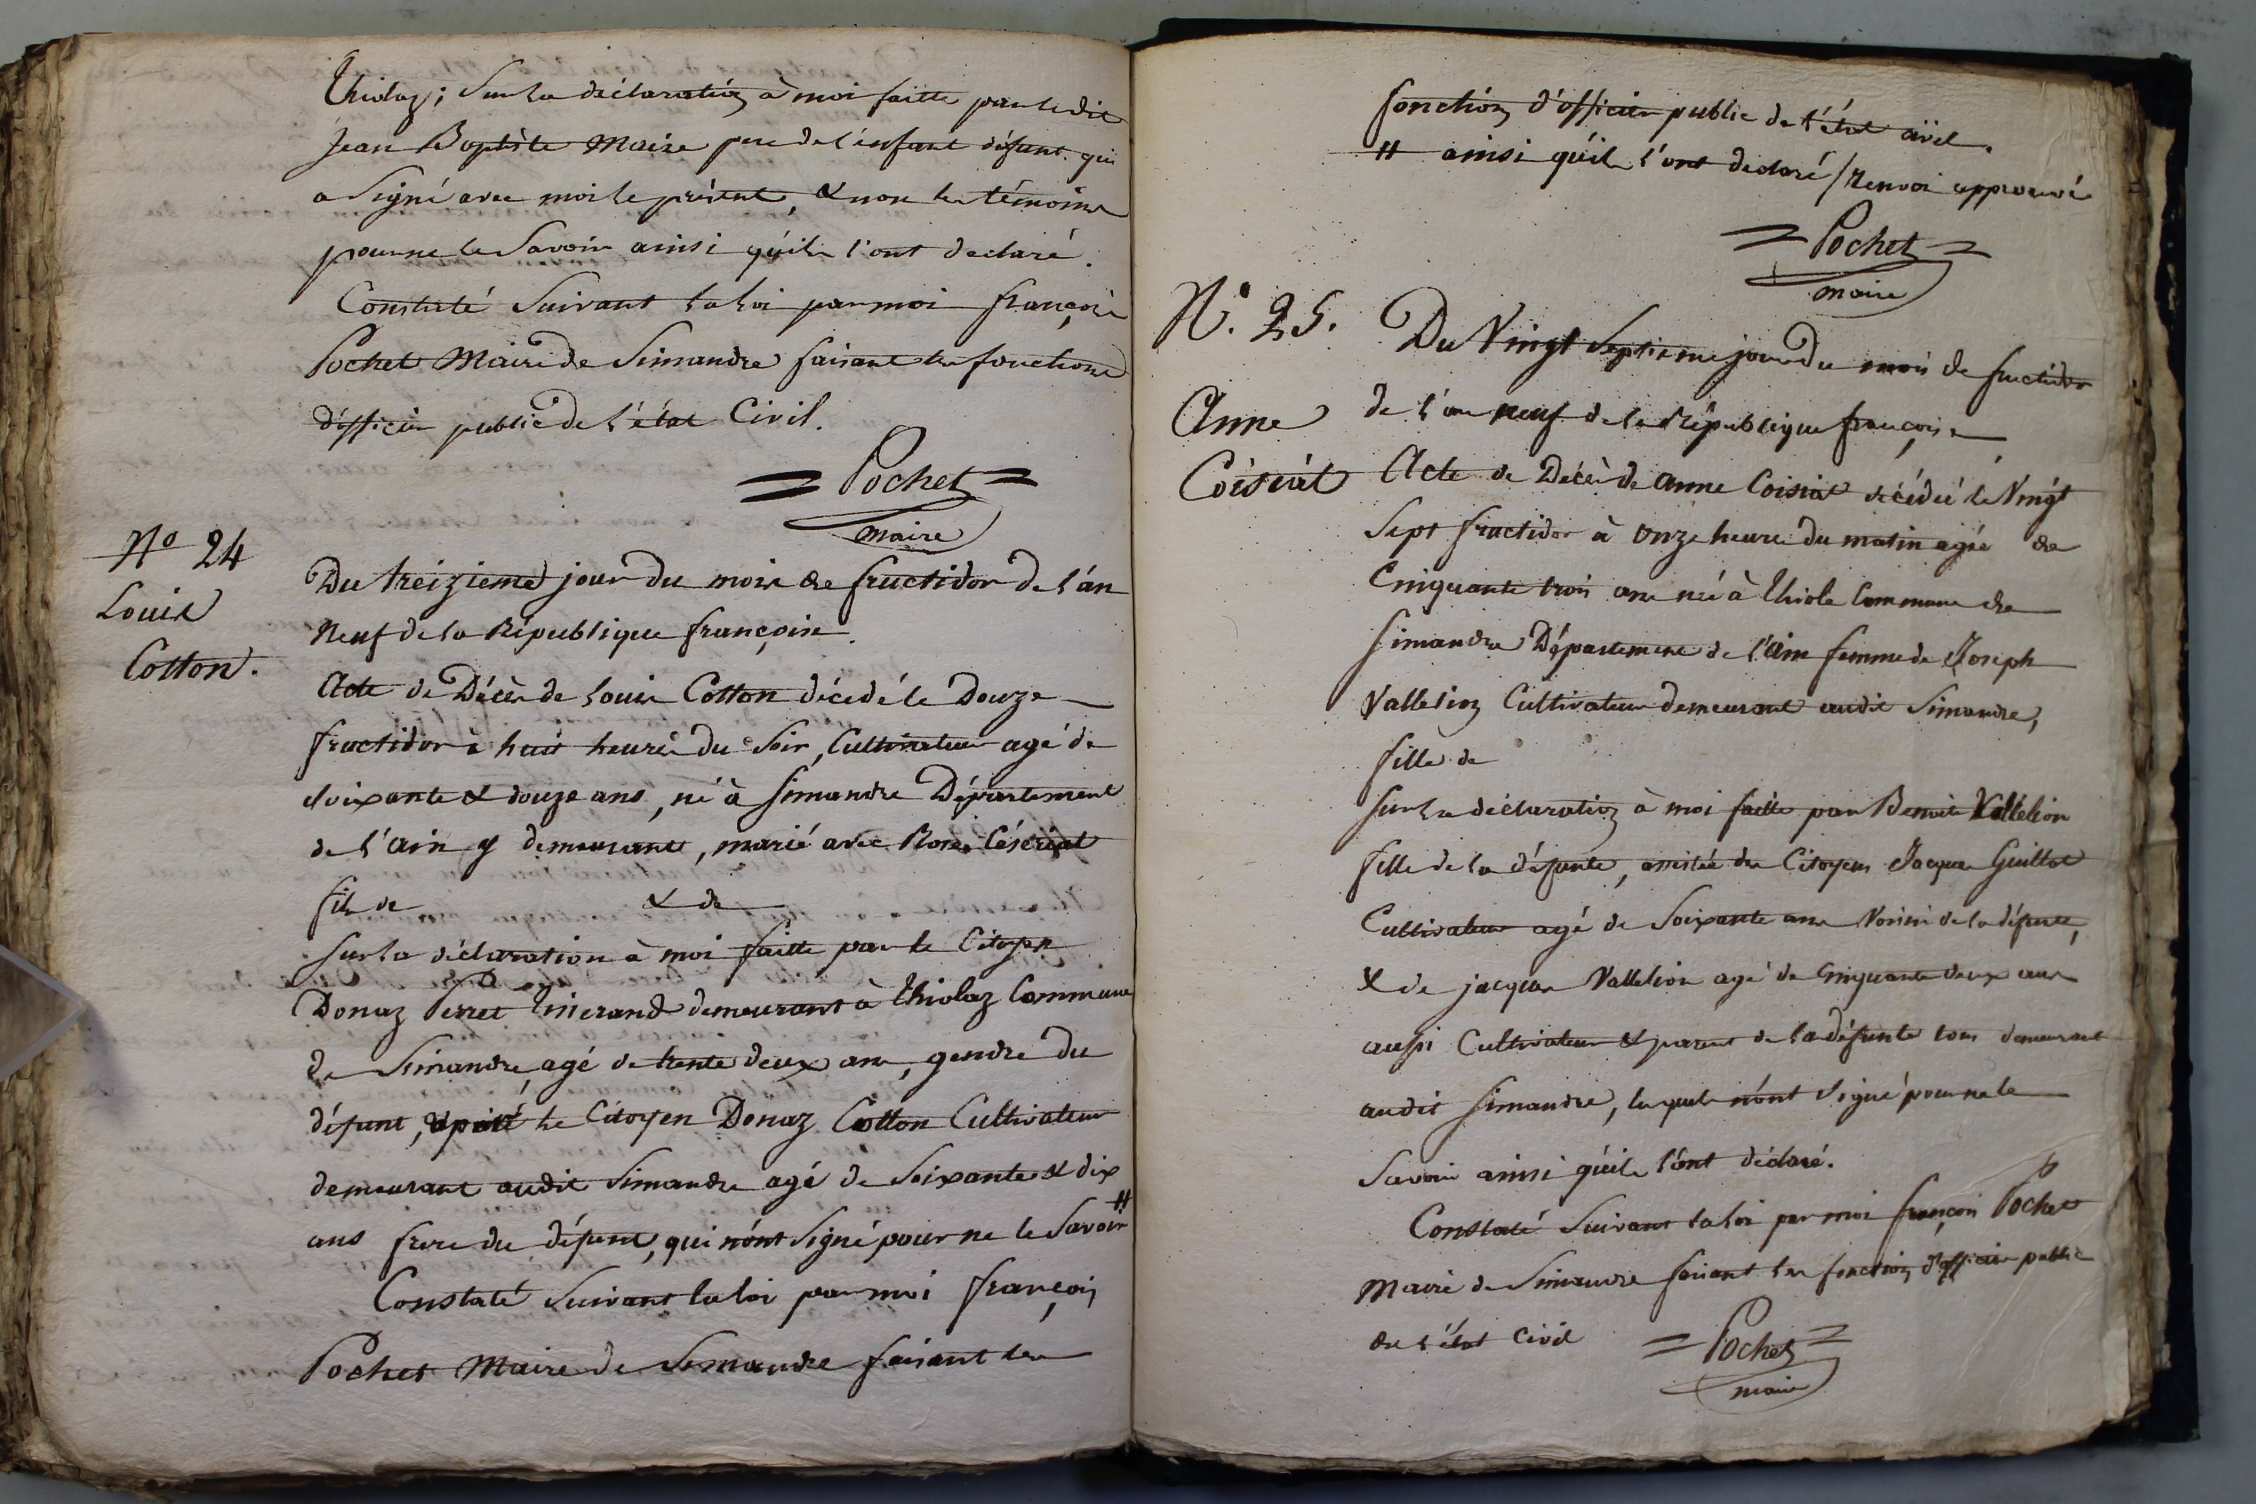 Thiolaz; Sur la déclaration à moi faitte par le dit
Jean Baptiste Maire pere de l'enfant défunt qui
a Signé avec moi le présent, & non les témoins
pour ne le Savoir ainsi qu'ils l'ont declaré.
Constaté Suivant la loi par moi françois
Pochet Maire de Simandre faisant les fonctions
d'officier public de l'état Civil.
= Pochet =
maire
No 24
Louis
Cotton.
Du treizieme jour du mois de fructidor de l'an
Neuf de la République françoise.
Acte de Décès de Louis Cotton décedé le Douze
fructidor à huit heures du Soir, Cultivateur agé de
Soixante & douze ans, né à Simandre Département
de l'Ain y demeurant, marié avec Rose Césériat
fils de & de
Sur la déclaration à moi faitte par le Citoyen
Donaz Perret Tisserand demeurant à Thiolaz Commune
de Simandre, agé de trente deux ans, gendre du
défunt, & le Citoyen Donaz Cotton Cultivateur
demeurant audit Simandre agé de Soixante & dix
ans frere du défunt, qui n'ont Signé pour ne le Savoir #
Constaté Suivant la loi par moi françois
Pochet Maire de Simandre faisant les
fonction d'officier public de l'état civil.
# ainsi qu'ils l'ont declaré / Renvoi approuvé
= Pochet =
maire
N°. 25.
Anne
Coisiat
Du Vingt Septieme jour du mois de fructidor
de l'an neuf de la République françoise
Acte de Décès de Anne Coisiat décédée le Vingt
Sept fructidor à onze heure du matin agée de
Cinquante trois ans née à Thiole Commune de
Simandre Département de l'Ain femme de Joseph
Valletion Cultivateur demeurant audit Simandre,
fille de
Sur la déclaration à moi faitte par Benoite Valletion
fille de la défunte, assistée du Citoyen Jacques Guillot
Cultivateur agé de Soixante ans Voisin de la défunte,
& de jacques Valletion agé de Cinquante deux ans
aussi Cultivateur & parent de la défunte tous demeurant
audit Simandre, lesquels n'ont Signé pour ne le
Savoir ainsi qu'ils l'ont déclaré.
Constaté Suivant la loi par moi françois Pochet
Maire de Simandre faisant les fonction d'officier public
de l'état civil
= Pochet =
maire